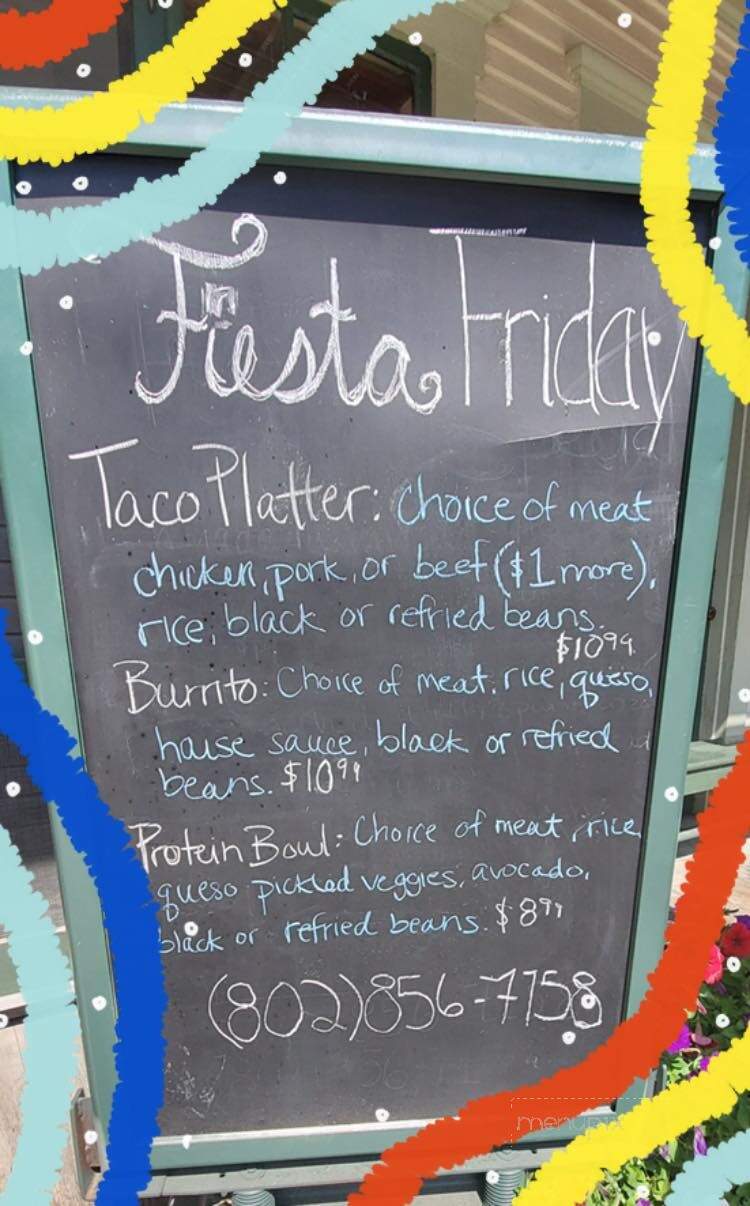 Fiesta Friday
Taco Platter: Choice of meat
chicken, pork, or beef ($1 more),
rice, black or refried beans.
$10.99
Burrito: Choice of meat, rice, queso,
house sauce, black or refried
beans. $10.99
Protein Bowl: Choice of meat, rice,
queso pickled veggies, avocado,
black or refried beans. $8.99
(802)856-7758